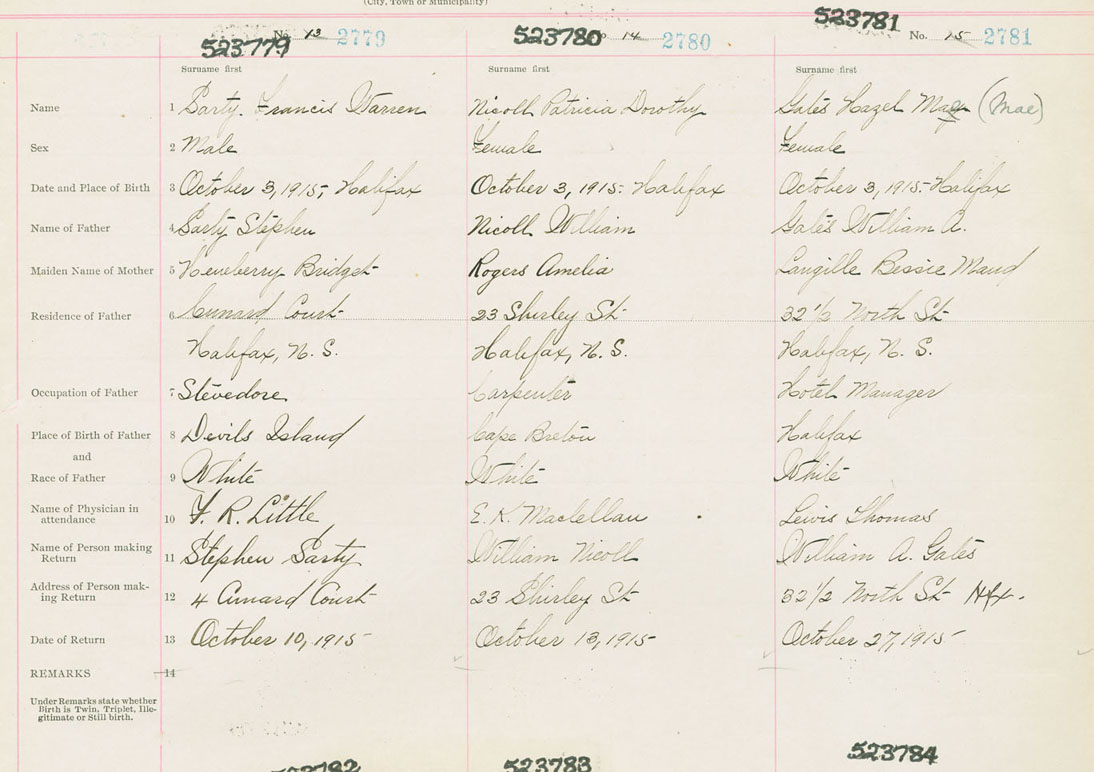 (City, Town or Municipality)
523779 No. 13 2779 523780 No 14 2780 523781 No. 15 2781
Surname first Surname first Surname first
Name 1 Sarty. Francis Warren Nicoll Patricia Dorothy Gates Hazel May (Mae)
Sex 2 Male Female Female
Date and Place of Birth 3 October 3, 1915, Halifax October 3, 1915. Halifax October 3, 1915. Halifax
Name of Father 4 Sarty Stephen Nicoll William Gates William A.
Maiden Name of Mother 5 Heneberry Bridget Rogers Amelia Langille Bessie Maud
Residence of Father 6 Cunard Court 23 Shirley St 32 1/2 North St
Halifax, N. S. Halifax, N. S. Halifax, N. S.
Occupation of Father 7 Stevedore Carpenter Hotel Manager
Place of Birth of Father 8 Devils Island Cape Breton Halifax
and
Race of Father 9 White White White
Name of Physician in
attendance 10 F. R. Little E. K. Maclellan Lewis Thomas
Name of Person making
Return 11 Stephen Sarty William Nicoll William A. Gates
Address of Person mak-
ing Return 12 4 Cunard Court 23 Shirley St 32 1/2 North St Hfx.
Date of Return 13 October 10, 1915 October 13, 1915 October 27, 1915
REMARKS 14
Under Remarks state whether
Birth is Twin, Triplet, Ille-
gitimate or Still birth.
523782 523783 523784